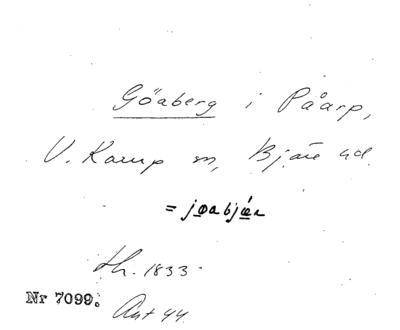 Göaberg i Påarp,
V. Karup sn, Bjäre hd.
= jøabjǽ̣r
lh. 1833.
Nr 7099. Ant 44